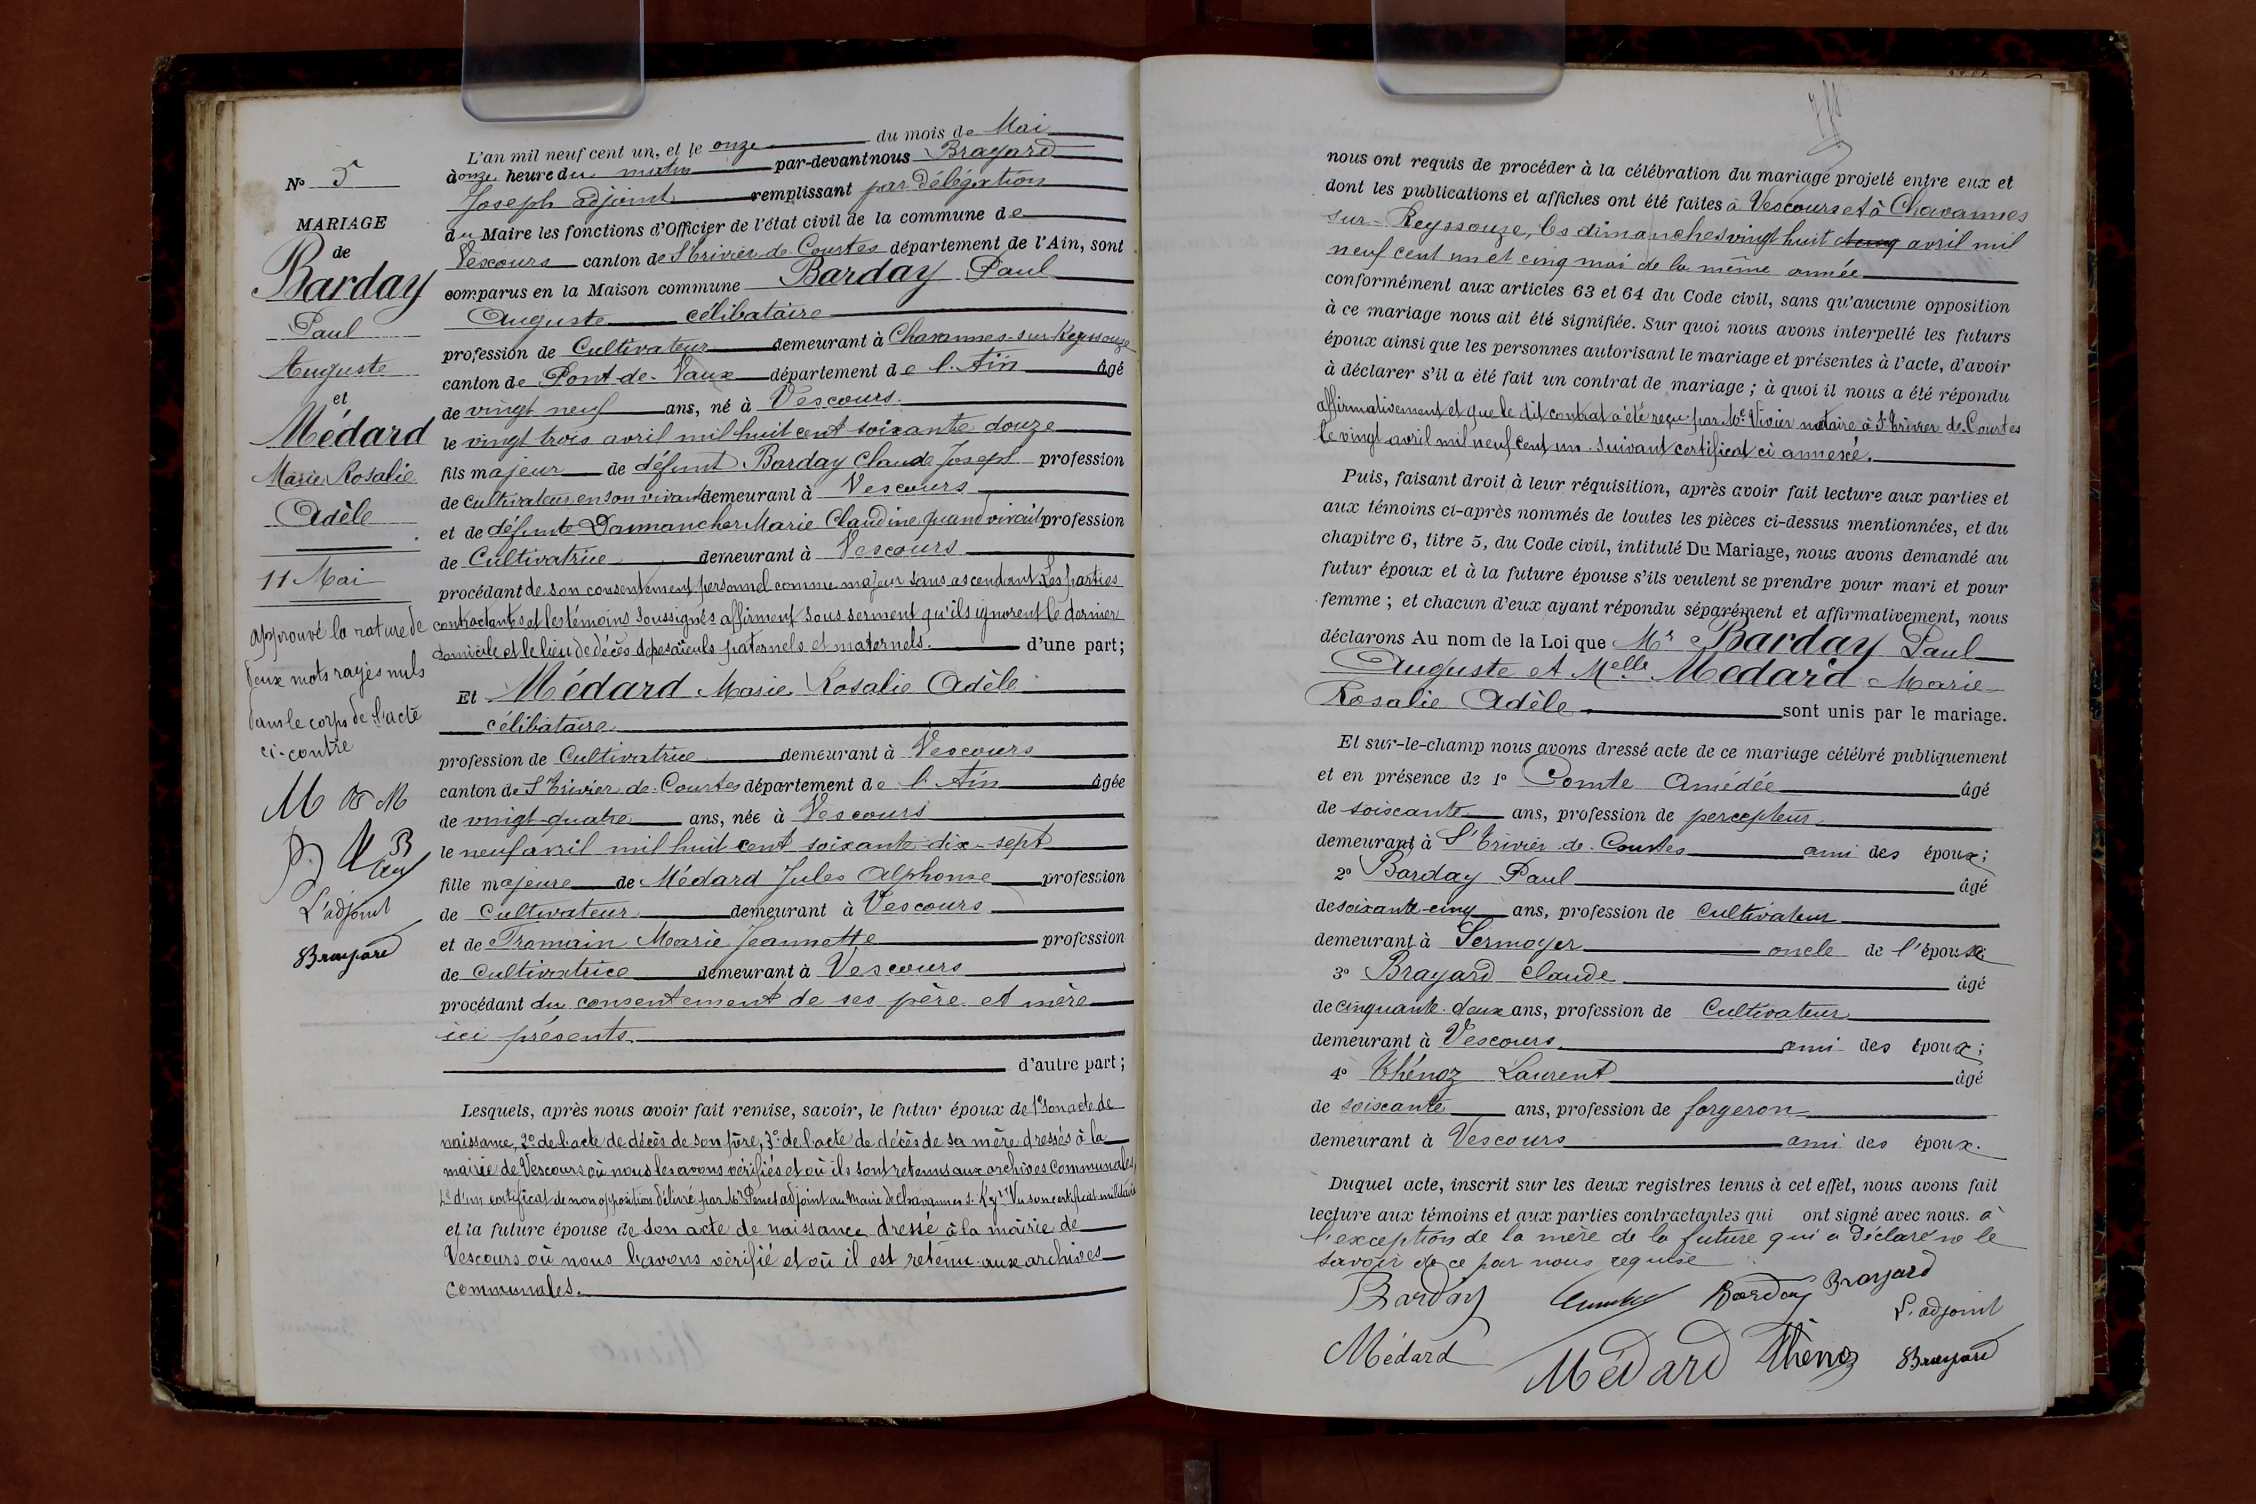 N° 5
MARIAGE
de
Barday
Paul
Auguste
et
Médard
Marie Rosalie
Adèle
11 Mai
approuvé la rature de
deux mots rayés nuls
dans le corps de l'acte
ci-contre
L'adjoint
Brayard
L'an mil neuf cent un, et le onze du mois de Mai
à onze heure du matin par-devant nous Brayard
Joseph adjoint remplissant par délégation
du Maire les fonctions d'Officier de l'état civil de la commune de
Vescours canton de St Trivier de Courtes département de l'Ain, sont
comparus en la Maison commune Barday Paul
Auguste célibataire
profession de Cultivateur demeurant à Chavannes-sur-Reyssouze
canton de Pont-de-Vaux département de l'Ain âgé
de vingt neuf ans, né à Vescours
le vingt trois avril mil huit cent soixante douze
fils majeur de défunt Barday Claude Joseph profession
de cultivateur en son vivant demeurant à Vescours
et de défunte Dannancher Marie Claudine quand vivait profession
de Cultivatrice demeurant à Vescours
procédant de son consentement personnel comme majeur sans ascendant Les parties
contractantes et les témoins soussignés affirment sous serment qu'ils ignorent le dernier
domicile et le lieu de décès de ses aïeuls paternels et maternels. d'une part;
Et Médard Marie Rosalie Adèle
célibataire
profession de Cultivatrice demeurant à Vescours
canton de St Trivier de Courtes département de l'Ain âgée
de vingt-quatre ans, née à Vescours
le neuf avril mil huit cent soixante-dix-sept
fille majeure de Médard Jules Alphonse profession
de Cultivateur demeurant à Vescours
et de Tromain Marie Jeannette profession
de Cultivatrice demeurant à Vescours
procédant du consentement de ses père et mère
ici présents
d'autre part;
Lesquels, après nous avoir fait remise, savoir, le futur époux de 1° son acte de
naissance, 2° de l'acte de décès de son père, 3° de l'acte de décès de sa mère dressés à la
mairie de Vescours où nous les avons vérifiés et où ils sont retenus aux archives communales,
4° d'un certificat de non opposition délivré par Mr Penet adjoint au Maire de Chavannes s. Vu son certificat militaire
et la future épouse de son acte de naissance dressé à la mairie de
Vescours où nous l'avons vérifié et où il est retenu aux archives
communales.
nous ont requis de procéder à la célébration du mariage projeté entre eux et
dont les publications et affiches ont été faites à Vescours et à Chavannes
sur-Reyssouze, les dimanches vingt huit avril mil
neuf cent un et cinq mai de la même année
conformément aux articles 63 et 64 du Code civil, sans qu'aucune opposition
à ce mariage nous ait été signifiée. Sur quoi nous avons interpellé les futurs
époux ainsi que les personnes autorisant le mariage et présentes à l'acte, d'avoir
à déclarer s'il a été fait un contrat de mariage; à quoi il nous a été répondu
affirmativement et que le dit contrat a été reçu par Me Vivier notaire à St Trivier de Courtes
le vingt avril mil neuf cent un suivant certificat ci annexé.
Puis, faisant droit à leur réquisition, après avoir fait lecture aux parties et
aux témoins ci-après nommés de toutes les pièces ci-dessus mentionnées, et du
chapitre 6, titre 5, du Code civil, intitulé Du Mariage, nous avons demandé au
futur époux et à la future épouse s'ils veulent se prendre pour mari et pour
femme; et chacun d'eux ayant répondu séparément et affirmativement, nous
déclarons Au nom de la Loi que Mr Barday Paul
Auguste et Melle Médard Marie
Rosalie Adèle sont unis par le mariage.
Et sur-le-champ nous avons dressé acte de ce mariage célébré publiquement
et en présence de 1° Comte Amédée âgé
de soixante ans, profession de percepteur
demeurant à St Trivier de Courtes ami des époux;
2° Barday Paul âgé
de soixante-cinq ans, profession de Cultivateur
demeurant à Sermoyer oncle de l'époux;
3° Brayard Claude âgé
de cinquante-deux ans, profession de Cultivateur
demeurant à Vescours ami des époux;
4° Thénoz Laurent âgé
de soixante ans, profession de forgeron
demeurant à Vescours ami des époux.
Duquel acte, inscrit sur les deux registres tenus à cet effet, nous avons fait
lecture aux témoins et aux parties contractantes qui ont signé avec nous. à
l'exception de la mère de la future qui a déclaré ne le
savoir de ce par nous requise
Barday Barday Brayard
L'adjoint
Médard Médard Thénoz Brayard